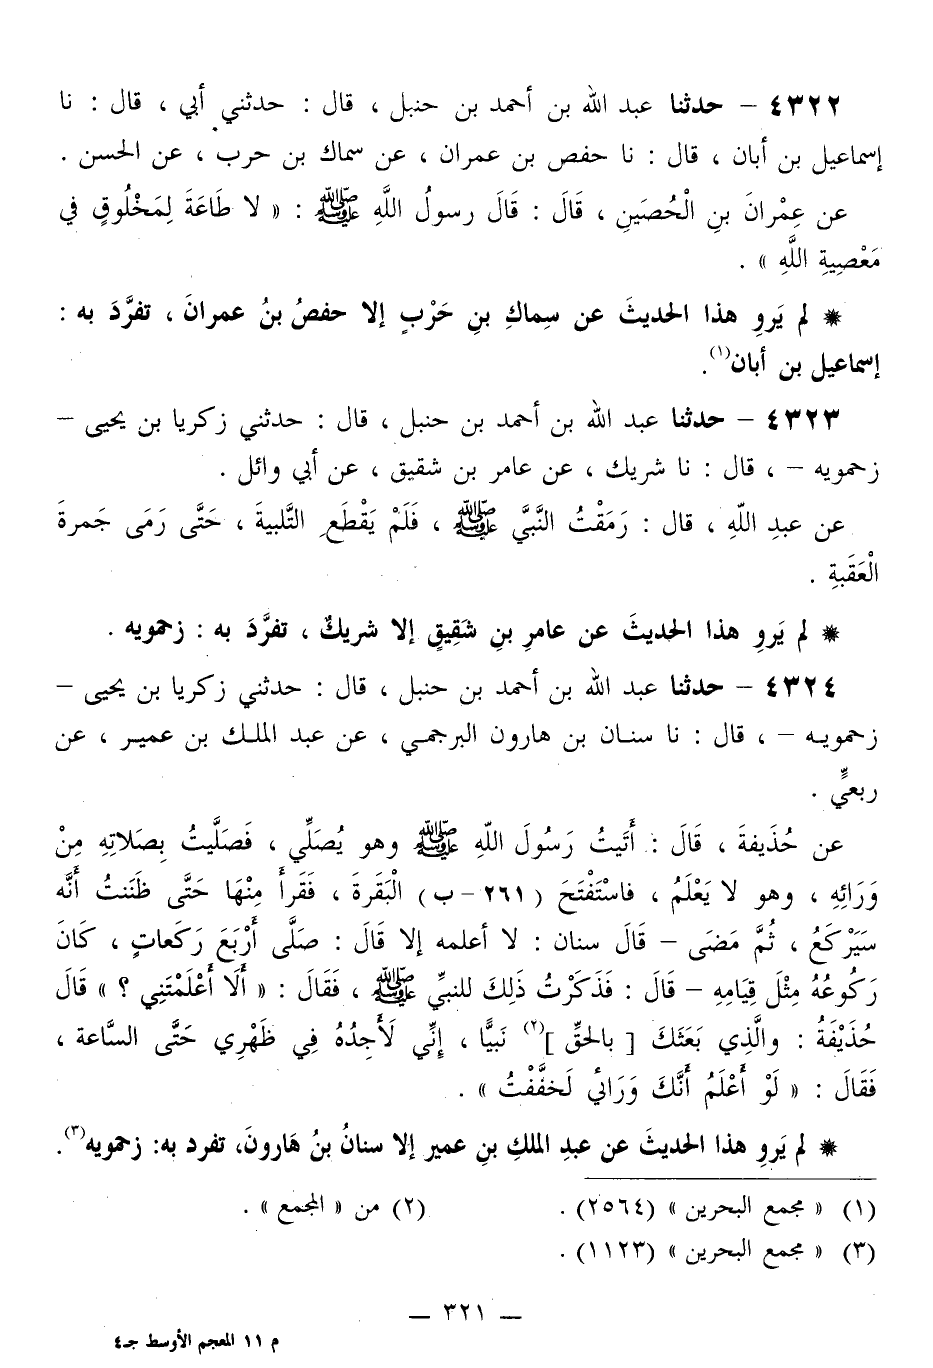 ٤٣٢٢ – حدثنا عبد الله بن أحمد بن حنبل ، قال : حدثني أبي ، قال : نا
إسماعيل بن أبان ، قال : نا حفص بن عمران ، عن سماك بن حرب ، عن الحسن .
عن عِمْرانَ بنِ الْحُصَينِ ، قَالَ : قَالَ رسولُ اللَّهِ ﷺ : « لا طَاعَةَ لِمَخْلُوقٍ في
مَعْصِيةِ اللَّهِ » .
* لم يَروِ هذا الحديثَ عن سِماكِ بنِ حَرْبٍ إلا حفصُ بنُ عمرانَ ، تفرَّدَ به :
إسماعيل بن أبان(١).
٤٣٢٣ – حدثنا عبد الله بن أحمد بن حنبل ، قال : حدثني زكريا بن يحيى –
زحمويه – ، قال : نا شريك ، عن عامر بن شقيق ، عن أبي وائل .
عن عبدِ اللَّهِ ، قال : رَمَقْتُ النَّبيَّ ﷺ ، فَلَمْ يَقْطَعِ التَّلبيةَ ، حَتَّى رَمَى جَمرةَ
الْعَقَبةِ .
* لم يَروِ هذا الحديثَ عن عامرِ بنِ شَقِيقٍ إلا شريكٌ ، تفرَّدَ به : زحمويه .
٤٣٢٤ – حدثنا عبد الله بن أحمد بن حنبل ، قال : حدثني زكريا بن يحيى –
زحمويه – ، قال : نا سنان بن هارون البرجمي ، عن عبد الملك بن عمير ، عن
ربعيٍّ .
عن حُذَيفةَ ، قَالَ : أَتَيتُ رَسُولَ اللَّهِ ﷺ وهو يُصَلِّي ، فَصَلَّيتُ بِصَلاتِهِ مِنْ
وَرَائِهِ ، وهو لا يَعْلَمُ ، فاسْتَفْتَحَ ( ٢٦١ – ب ) الْبَقَرةَ ، فَقَرأَ مِنْهَا حَتَّى ظَنَنتُ أَنَّه
سَيَرْكَعُ ، ثُمَّ مَضَى – قَالَ سنان : لا أعلمه إلا قَالَ : صَلَّى أَرْبَعَ رَكَعاتٍ ، كَانَ
رَكُوعُهُ مِثْلَ قِيَامِهِ – قَالَ : فَذَكَرْتُ ذَلِكَ للنبيِّ ﷺ ، فَقَالَ : « أَلَا أَعْلَمْتَنِي ؟ » قَالَ
حُذَيْفَةُ : والَّذِي بَعَثَكَ [ بالحقِّ ](٢) نَبيًّا ، إِنِّي لَأَجِدُهُ فِي ظَهْرِي حَتَّى السَّاعة ،
فَقَالَ : « لَوْ أَعْلَمُ أَنَّكَ وَرَائي لَخفَّفْتُ » .
* لم يَروِ هذا الحديثَ عن عبدِ الملكِ بنِ عمير إلا سنانُ بنُ هَارونَ، تفرد به: زحمويه(٣).
(١) « مجمع البحرين » (٢٥٦٤) . (٢) من « المجمع » .
(٣) « مجمع البحرين » (١١٢٣) .
– ٣٢١ –
م ١١ المعجم الأوسط جـ٤